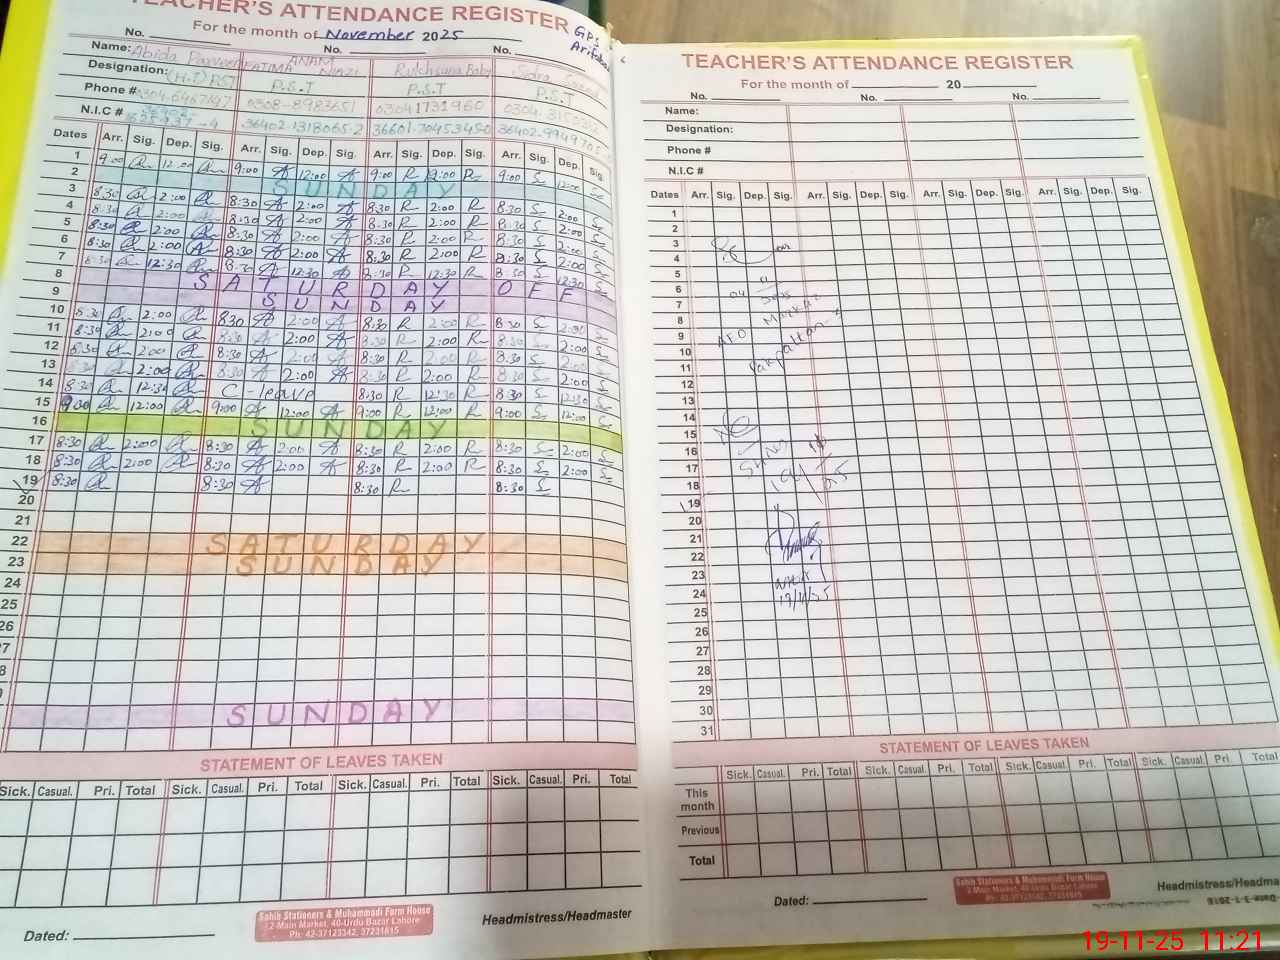 TEACHER'S ATTENDANCE REGISTER
For the month of November 2025
GPS
No. No. No.
Name: Abida Parveen FATIMA ANAM NIAZI Rukhsana Baby
Designation: (H.T) PST P.S.T P.S.T P.S.T
Phone # 0308-8983651 03041731960
N.I.C # 36402-1318065-2 36601-7045345-0
Dates Arr. Sig. Dep. Sig. Arr. Sig. Dep. Sig. Arr. Sig. Dep. Sig. Arr. Sig. Dep. Sig.
1 9:00 12:00 9:00 12:00 9:00 R 12:00 R 9:00 12:00
2 SUNDAY
3 8:30 2:00 8:30 2:00 8:30 R 2:00 R 8:30 2:00
4 8:30 2:00 8:30 2:00 8:30 R 2:00 R 8:30 2:00
5 8:30 2:00 8:30 2:00 8:30 R 2:00 R 8:30 2:00
6 8:30 2:00 8:30 2:00 8:30 R 2:00 R 8:30 2:00
7 8:30 12:30 8:30 12:30 8:30 R 12:30 R 8:30 12:30
8 SATURDAY OFF
9 SUNDAY
10 8:30 2:00 8:30 2:00 8:30 R 2:00 R 8:30 2:00
11 8:30 2:00 8:30 2:00 8:30 R 2:00 R 8:30 2:00
12 8:30 2:00 8:30 2:00 8:30 R 2:00 R 8:30 2:00
13 2:00 8:30 2:00 8:30 R 2:00 R 8:30 2:00
14 8:30 12:30 C-leave 8:30 R 12:30 R 8:30 12:30
15 12:00 9:00 12:00 9:00 R 12:00 R 9:00 12:00
16 SUNDAY
17 8:30 2:00 8:30 2:00 8:30 R 2:00 R 8:30 2:00
18 8:30 2:00 8:30 2:00 8:30 R 2:00 R 8:30 2:00
19 8:30 8:30 8:30 R 8:30
20
21
22 SATURDAY
23 SUNDAY
24
25
26
27
28
SUNDAY
STATEMENT OF LEAVES TAKEN
Sick. Casual. Pri. Total Sick. Casual. Pri. Total Sick. Casual. Pri. Total Sick. Casual. Pri. Total
Sahib Stationers & Muhammadi Form House
2-Main Market, 40-Urdu Bazar Lahore
Ph: 42-37123342, 37231615
Headmistress/Headmaster
Dated:
TEACHER'S ATTENDANCE REGISTER
For the month of 20
No. No. No.
Name:
Designation:
Phone #
N.I.C #
Dates Arr. Sig. Dep. Sig. Arr. Sig. Dep. Sig. Arr. Sig. Dep. Sig. Arr. Sig. Dep. Sig.
1
2
3
4
5
6
7
8
9
10
11
12
13
14
15
16
17
18
19
20
21
22
23
24
25
26
27
28
29
30
31
04
AEO Markaz
Pakpattan-
19/11/25
STATEMENT OF LEAVES TAKEN
Sick. Casual. Pri. Total Sick. Casual. Pri. Total Sick. Casual. Pri. Total Sick. Casual. Pri. Total
This month
Previous
Total
Sahib Stationers & Muhammadi Form House
2-Main Market, 40-Urdu Bazar Lahore
Ph: 42-37123342, 37231615
Headmistress/Headma
Dated:
19-11-25 11:21